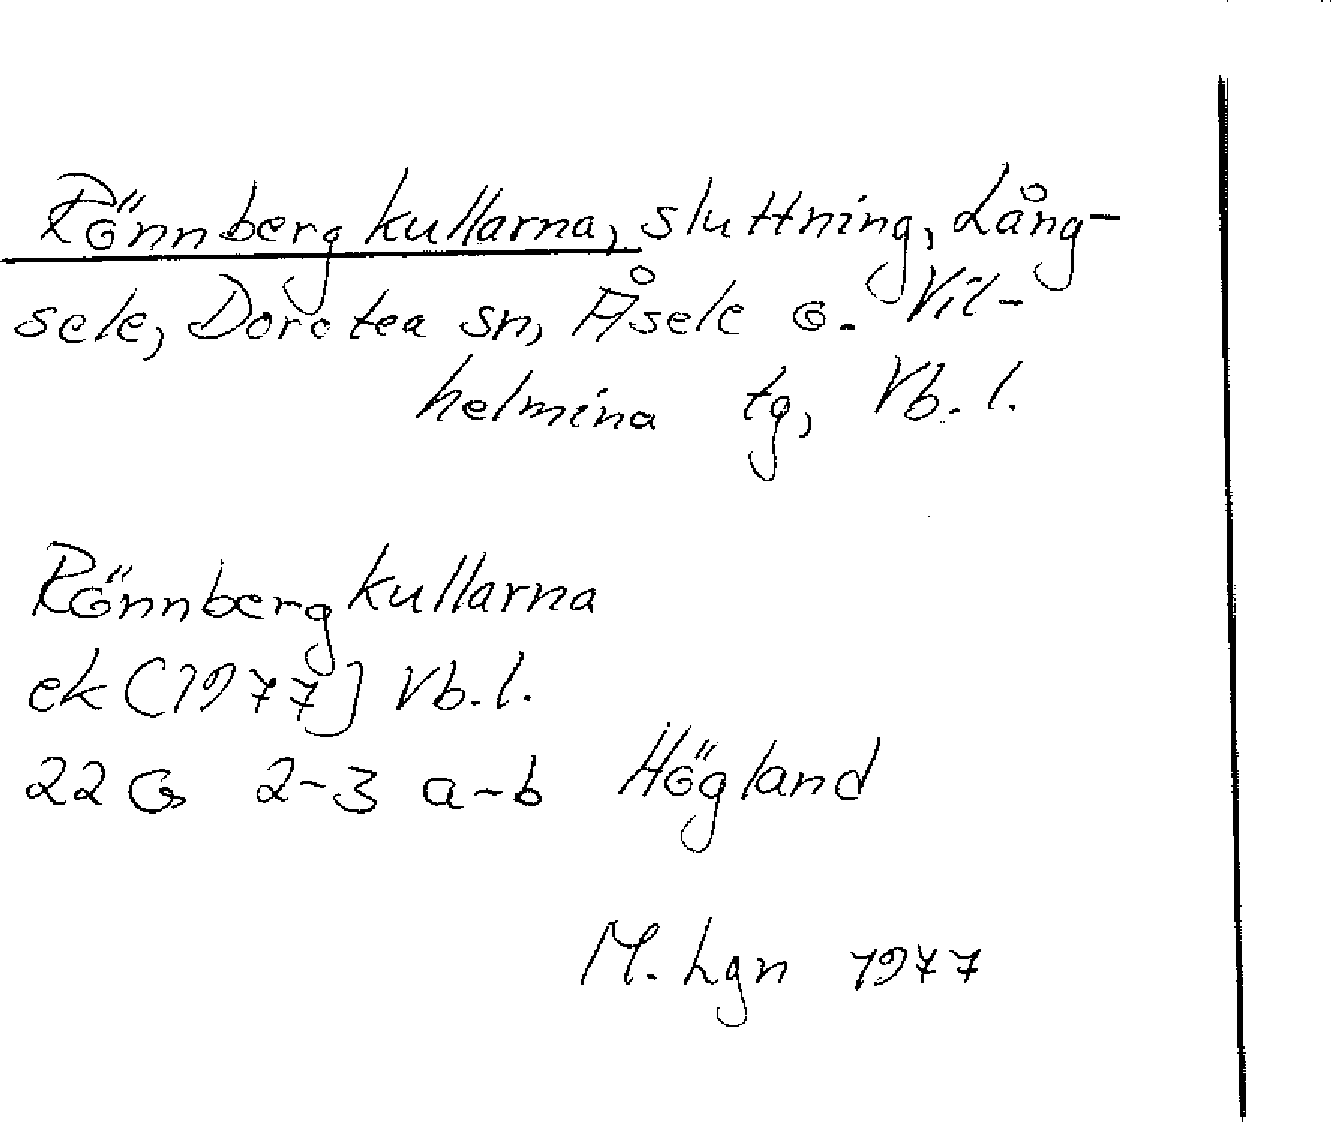 Rönnbergkullarna, sluttning, Lång-
sele, Dorotea sn, Åsele o. Vil-
helmina tg, Vb. l.
Rönnbergkullarna
ek (1977) Vb. l.
22 G 2-3 a-b Högland
M. Lgn 1977